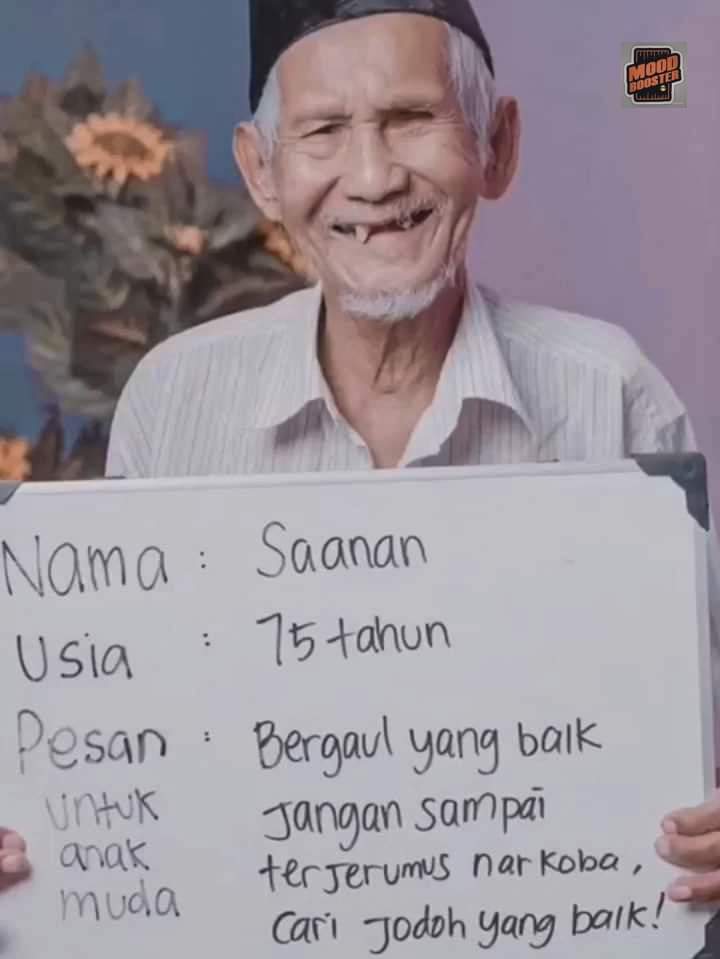 MOOD
BOOSTER
Nama : Saanan
Usia : 75 tahun
Pesan : Bergaul yang baik
untuk Jangan sampai
anak terjerumus narkoba,
muda Cari Jodoh yang baik!